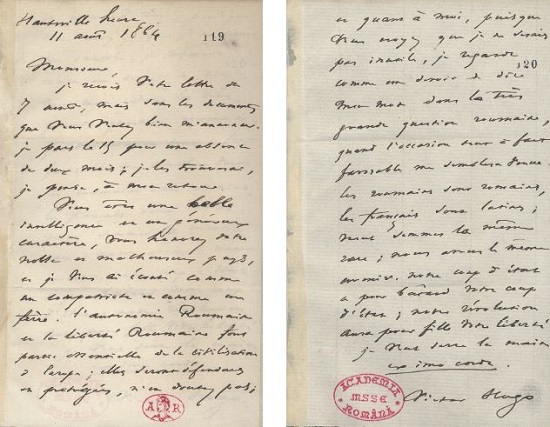 Hauteville house
11 août 1864
119
Monsieur,
je reçois votre lettre du
7 août, mais sans les documents
que vous voulez bien m'annoncer.
je pars le 15 pour une absence
de deux mois; je les trouverai,
je pense, à mon retour.
Vous êtes une noble
intelligence et un généreux
caractère, vous honorez votre
noble et malheureux pays,
et je vous ai écouté comme
un compatriote et comme un
frère. l'autonomie Roumaine
et la liberté Roumaine font
partie essentielle de la civilisation
de l'europe; elles seront défendues
et protégées, n'en doutez pas;
A R
et quant à moi, puisque
vous croyez que je ne serais
pas inutile, je regarde
120
comme un devoir de dire
mon mot dans la très
grande question roumaine,
quand l'occasion tout à fait
favorable me semblera venue.
les roumains sont romains,
les français sont latins;
nous sommes la même
race; nous avons le même
avenir. notre coup d'état
a pour bâtard votre coup
d'état; notre révolution
aura pour fille votre liberté
je vous serre la main
ex imo corde.
Victor Hugo
ACADEMIA
MSSE
ROMÂNĂ